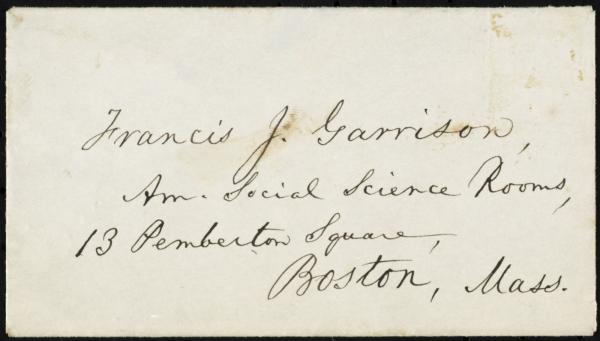 Francis J. Garrison,
Am. Social Science Rooms,
13 Pemberton Square,
Boston, Mass.